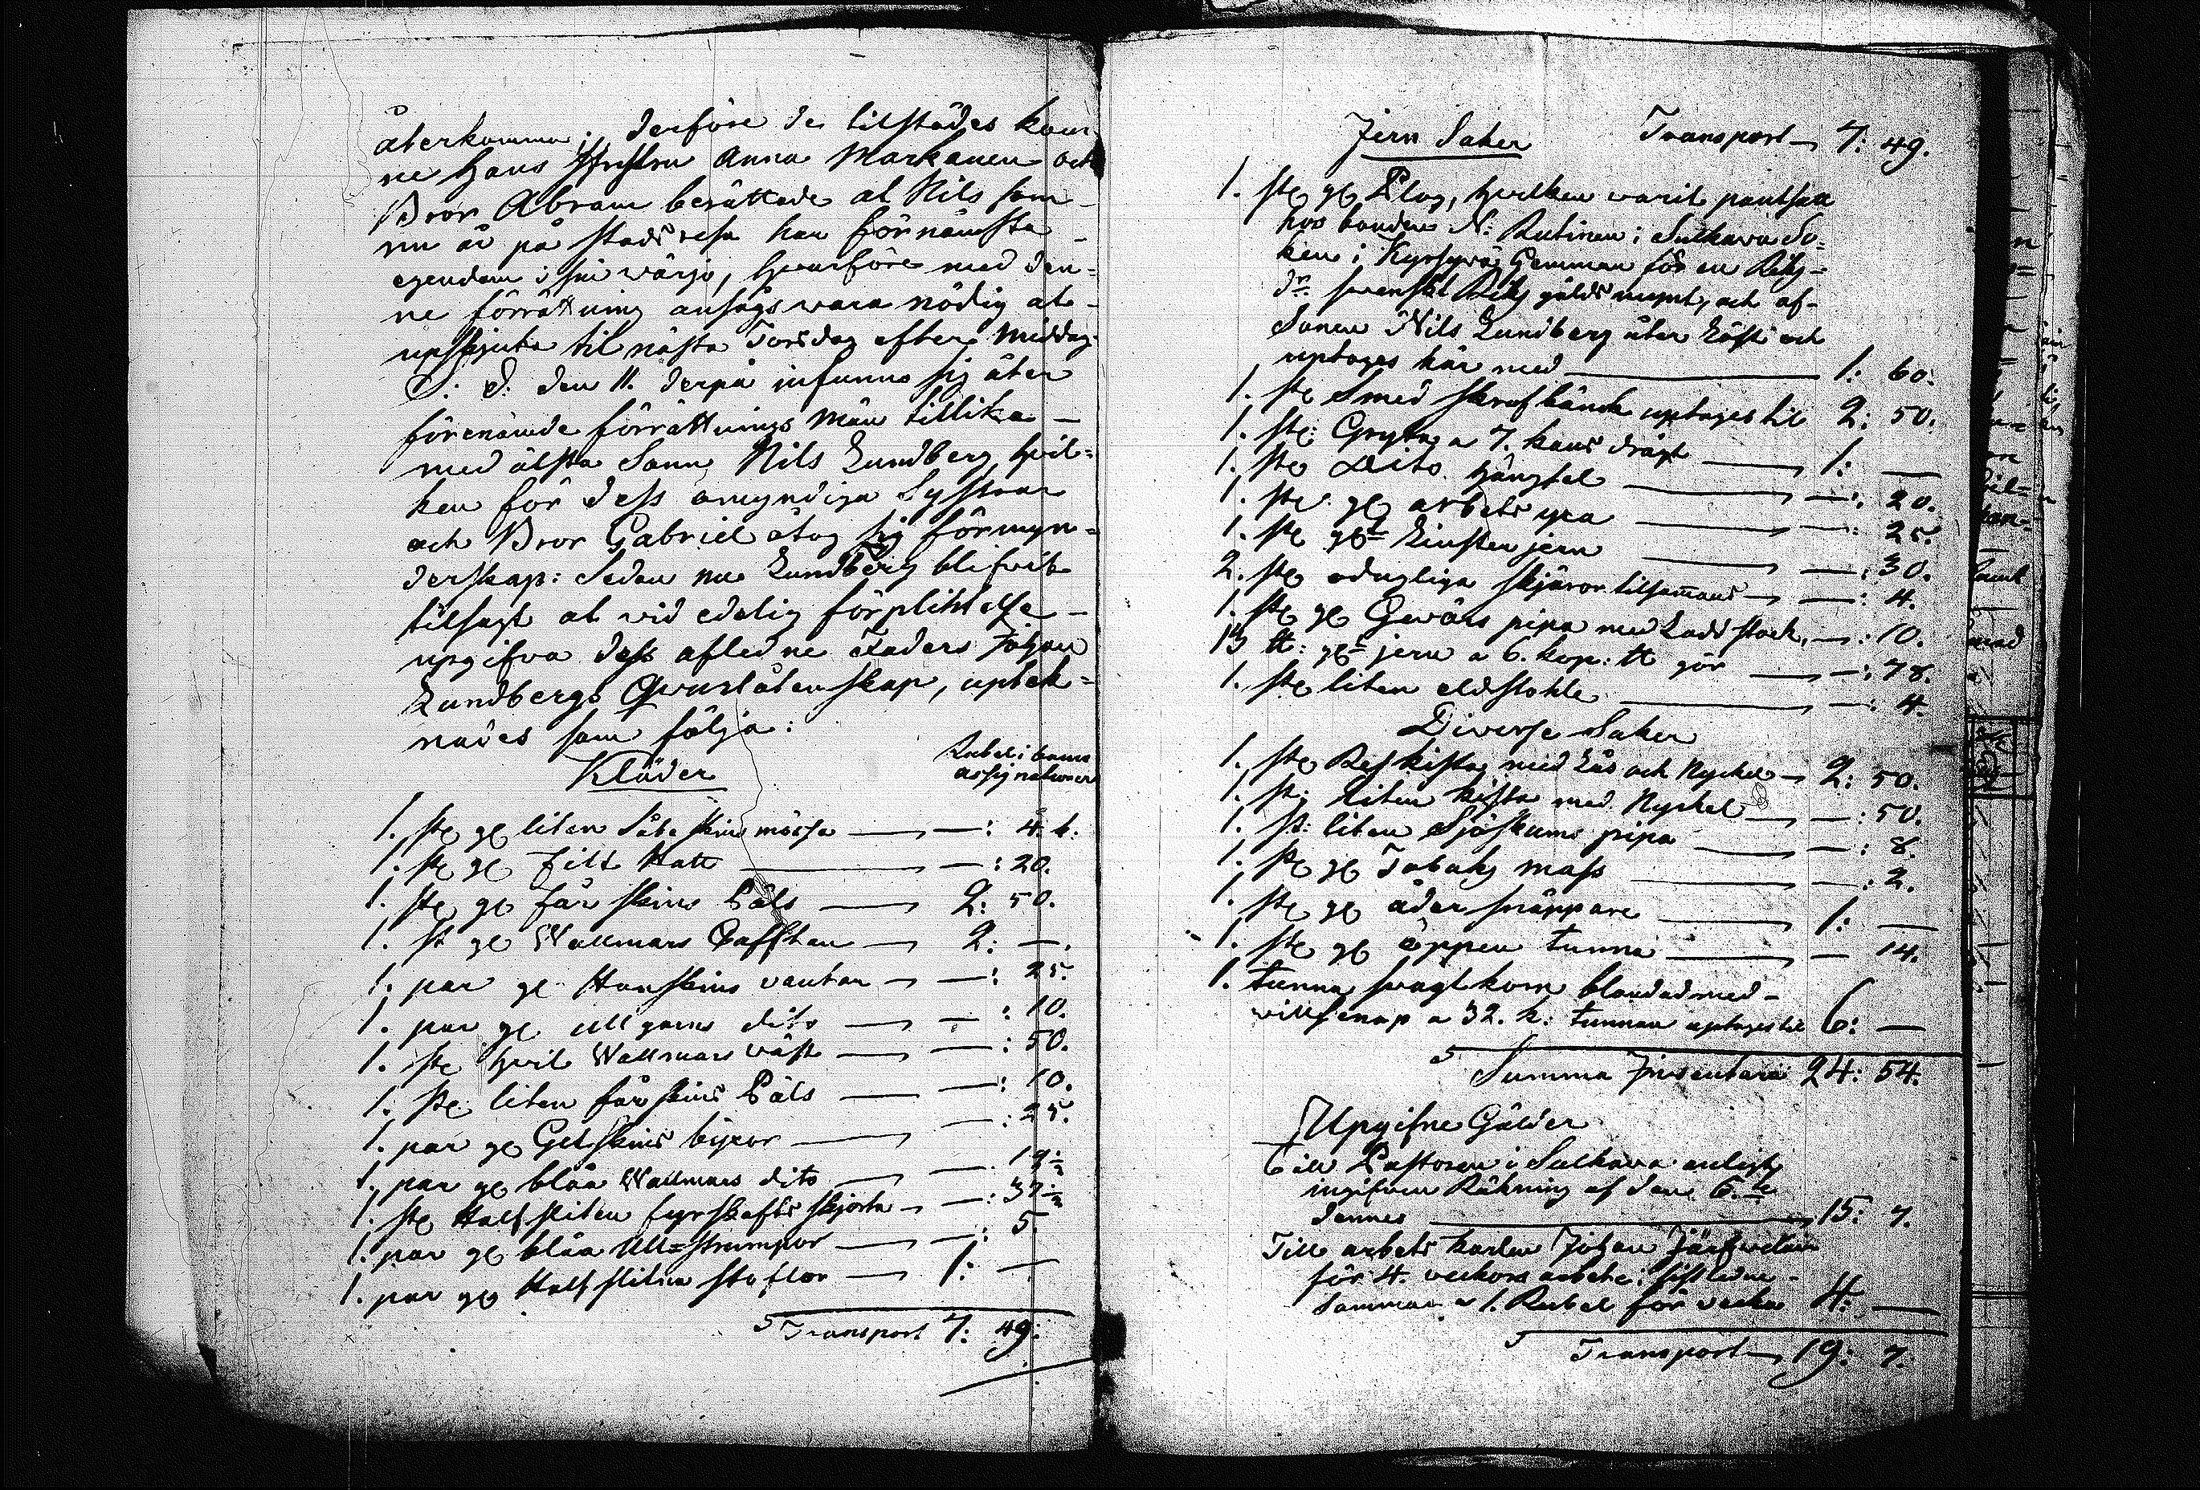 återkomma; derföre de tilstädes kom¬
ne hans Hustru Anna Markanen och
Bror Abram berättade at Nils som
nu är på stads resa har förnämsta
egendom i sin wärjo, hwarföre med den=
ne förrättning ansågs wara nödig at
upskjuta til nästa Torsdag efter Middag.
S. D. den 11. derpå infunno sig åter
förenämde förrättnings Män tillika
med älsta Sonen Nils Lundberg, hvil=
ken för dess omyndiga Systrar
och Bror Gabriel åtog sig förmyn=
derskap: Sedan nu Lundberg blifvit
tilsagt at vid edelig förplihtelse
upgifva dess afledne Faders Johan
Lundbergs Qvarlåtenskap, uptek=
nades som följa:
Kläder
Rubel i banco
assignationer
1. st gl liten Såbeskins mössa — : 4. k:
1. st gl Filt Hatt — : 20.
1. st gl får skins Päls 2: 50.
1. st gl Wallmars Cafftan 2: —.
1. par gl Hunskins vantar — : 25.
1. par gl ullgarns dito — : 10.
1. st hvit Wallmars väst — : 50.
1. st liten fårskins Päls — : 10.
1. par gl Getskins byxor — : 25.
1. par gl blåa Wallmars dito — : 12 1/2
1. st Half sliten fyrskafts skjorta — : 37 1/2
1. par gl blåa Ull=strumpor — : 5.
1. par gl Half slitna stöflar 1: —
Transport 7: 49:
Jern Saker Transport 7: 49.
1. st gl Plog, hvilken varit pantsatt
hos bonden N: Rutinen i Sulkava So=
ken i Kyrsyvä Gemman för en Riks=
dr svenskt Riks gälds mynt, och af
Sonen Nils Lundberg åter löst och
uptages här med 1: 60:
1. st Smed skrufbänk uptages til 2: 50.
1. st: Gryta a 7. kans drägt 1: —
1. st Dito hängsel — : 20.
1. st gl arbets yxa — : 25.
1. st gl Linster jern — : 30.
2. st odugliga skjäror tilsamans — : 4.
1. st gl Gevärs pipa med Ladd stock, — : 10.
13 tt: gl jern a 6. kop: tt gör — : 78.
1. st liten eldstohle — : 4.
Diverse Saker
1. st Reskista med Lås och Nyckel 2: 50.
1. st: liten kista med Nyckel — : 50.
1. st: liten Sjöskums pipa — : 8.
1. st gl Tobaks mass — : 2.
1. st gl åder snäppare 1: —
1. st gl öppen tunna — 14.
1. tunna svagt korn blandad med
villsenap a 32. k: tunnan uptages til 6: —
Summa Inventarie 24: 54.
Upgifne Gälder
Till Pastoren i Sulkava enligt
ingifven Räkning af den 6.te
dennes 15: 7.
Till arbets karlen Johan
för 4. veckors arbete i sistledne
sommar a 1. Rubel för vecka 4: —
Transport 19: 7.